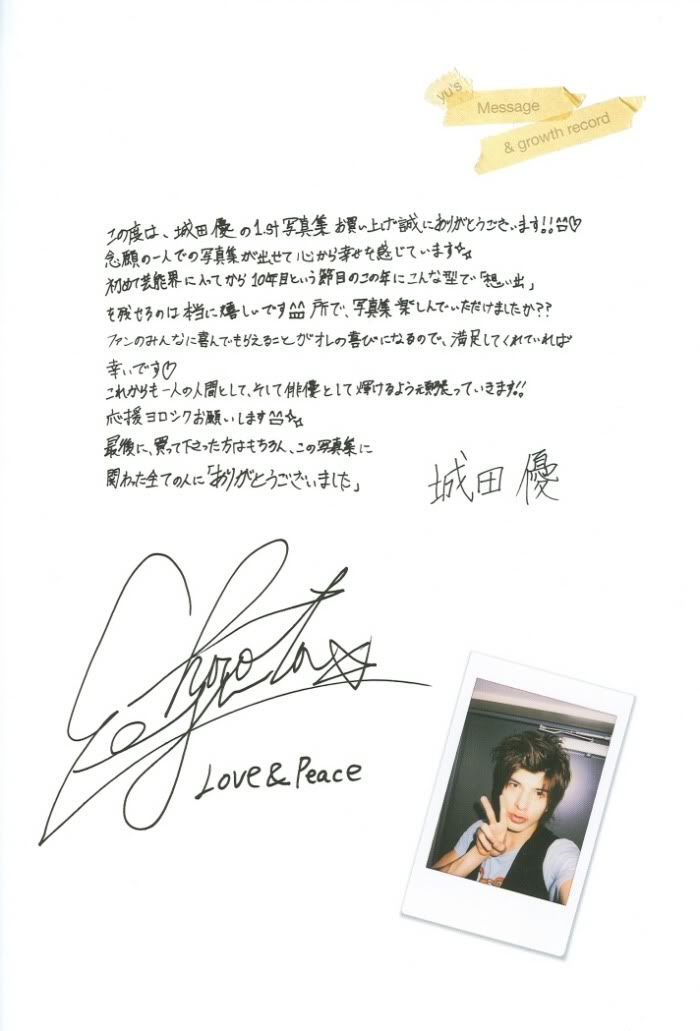 yu's
Message
& growth record
この度は、城田優の1.st写真集お買い上げ誠にありがとうございます!!^^♡
念願の一人での写真集が出せて心から幸せを感じています☆☆
初めて芸能界に入ってから10年目という節目のこの年にこんな型で「想い出」
を残せるのは本当に嬉しいです^^ 所で、写真集楽しんでいただけましたか??
ファンのみんなに喜んでもらえることがオレの喜びになるので、満足してくれていれば
幸いです♡
これからも一人の人間として、そして俳優として輝けるよう頑張っていきます!!
応援ヨロシクお願いします^^☆☆
最後に、買って下さった方はもちろん、この写真集に
関わった全ての人に「ありがとうございました」
城田優
Love & Peace